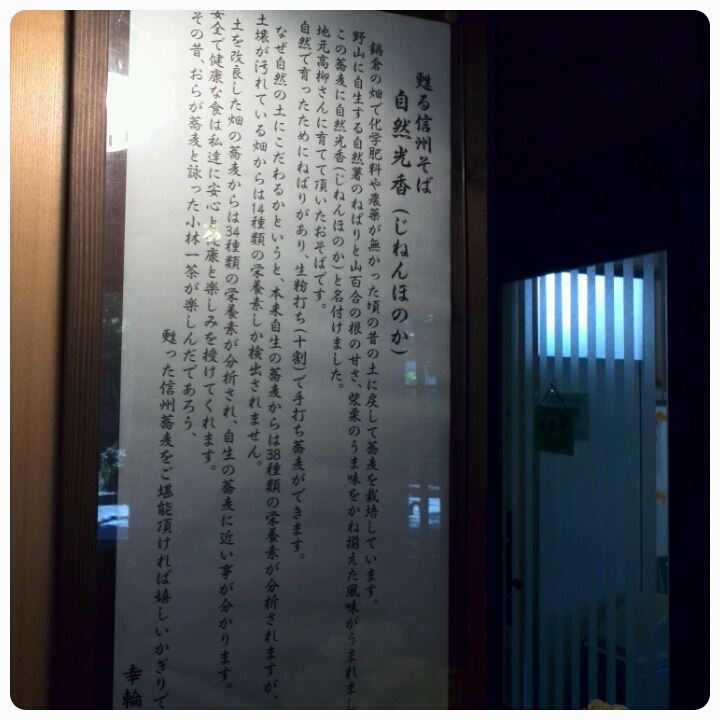 甦る信州そば
自然光香(じねんほのか)
鍋倉の畑で化学肥料や農薬が無かった頃の昔の土に戻して蕎麦を栽培しています。
野山に自生する自然薯のねばりと山百合の根の甘さ、柴栗のうま味をかね揃えた風味がうまれまし
この蕎麦に自然光香(じねんほのか)と名付けました。
地元高柳さんに育てて頂いたおそばです。
自然で育ったためにねばりがあり、生粉打ち(十割)で手打ち蕎麦ができます。
なぜ自然の土にこだわるかというと、本来自生の蕎麦からは38種類の栄養素が分析されますが、
土壌が汚れている畑からは14種類の栄養素しか検出されません。
土を改良した畑の蕎麦からは34種類の栄養素が分析され、自生の蕎麦に近い事が分かります。
安全で健康な食は私達に安心と健康と楽しみを授けてくれます。
その昔、おらが蕎麦と詠った小林一茶が楽しんだであろう、
甦った信州蕎麦をご堪能頂ければ嬉しいかぎりで
幸輪